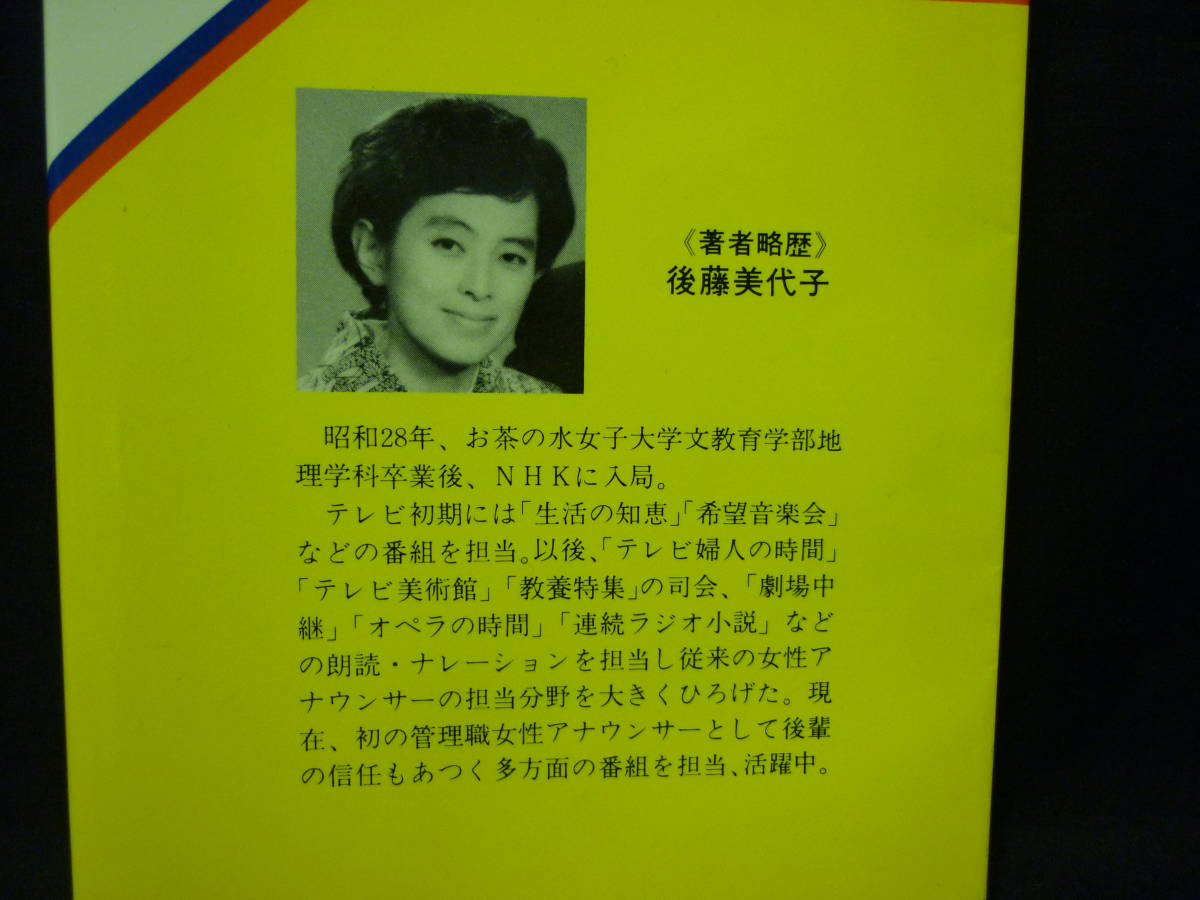 《著者略歴》
後藤美代子
昭和28年、お茶の水女子大学文教育学部地
理学科卒業後、NHKに入局。
テレビ初期には「生活の知恵」「希望音楽会」
などの番組を担当。以後、「テレビ婦人の時間」
「テレビ美術館」「教養特集」の司会、「劇場中
継」「オペラの時間」「連続ラジオ小説」など
の朗読・ナレーションを担当し従来の女性ア
ナウンサーの担当分野を大きくひろげた。現
在、初の管理職女性アナウンサーとして後輩
の信任もあつく多方面の番組を担当、活躍中。